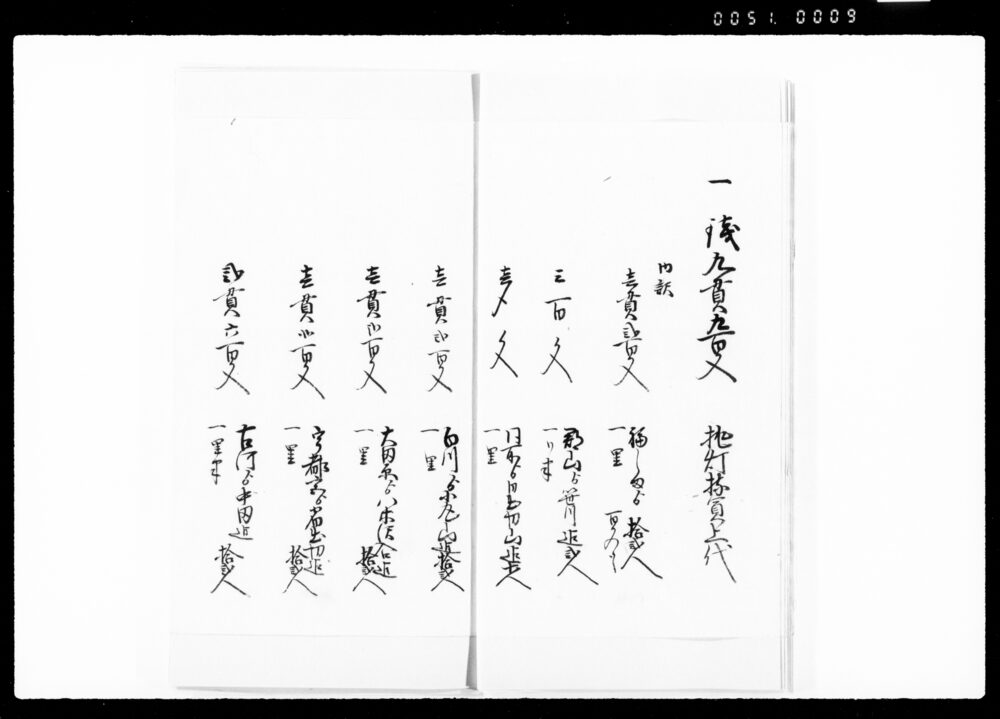 0051.0009
一 銭九貫九百文 挑灯持賃上代
内訳
壱貫弐百文 福しまゟ 拾弐人
一里 百文ツヽ
三百文 郡山ゟ笹川迄弐人
一り半
壱〆文
一里
壱貫弐百文 白川ゟ 迄拾弐人
一里
壱貫弐百文 大田原ゟ八木沢入口迄
一里 拾弐人
壱貫弐百文 宇都宮ゟ 迄
一里 拾弐人
弐貫六百文 古河ゟ中田迄
一里半 拾弐人